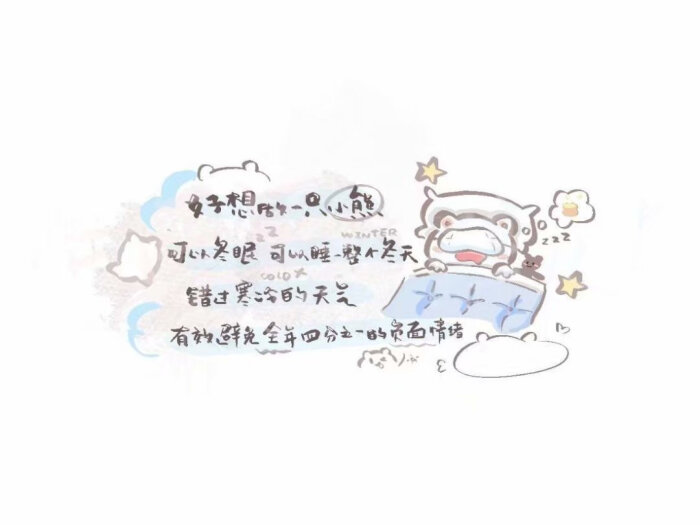 好想做一只小熊
zzz
zzz
WINTER
可以冬眠 可以睡一整个冬天
COLD
错过寒冷的天气
有效避免全年四分之一的负面情绪